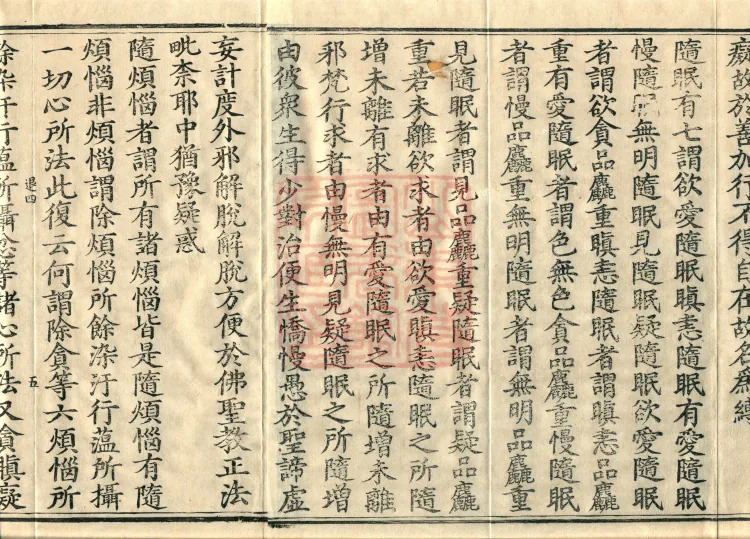 癡故於善加行不得自在故名爲縛
隨眠有七謂欲愛隨眠瞋恚隨眠有愛隨眠
慢隨眠無明隨眠見隨眠疑隨眠欲愛隨眠
者謂欲貪品麤重瞋恚隨眠者謂瞋恚品麤
重有愛隨眠者謂色無色貪品麤重慢隨眠
者謂慢品麤重無明隨眠者謂無明品麤重
見隨眠者謂見品麤重疑隨眠者謂疑品麤
重若未離欲求者由欲愛瞋恚隨眠之所隨
增未離有求者由有愛隨眠之所隨增未離
邪梵行求者由慢無明見疑隨眠之所隨增
由彼衆生得少對治便生憍慢愚於聖諦虛
妄計度外邪解脫解脫方便於佛聖教正法
毗柰耶中猶豫疑惑
隨煩惱者謂所有諸煩惱皆是隨煩惱有隨
煩惱非煩惱謂除煩惱所餘染汙行蘊所攝
一切心所法此復云何謂除貪等六煩惱所
退四 五
餘染汙行蘊所攝忿等諸心所法又貪瞋癡